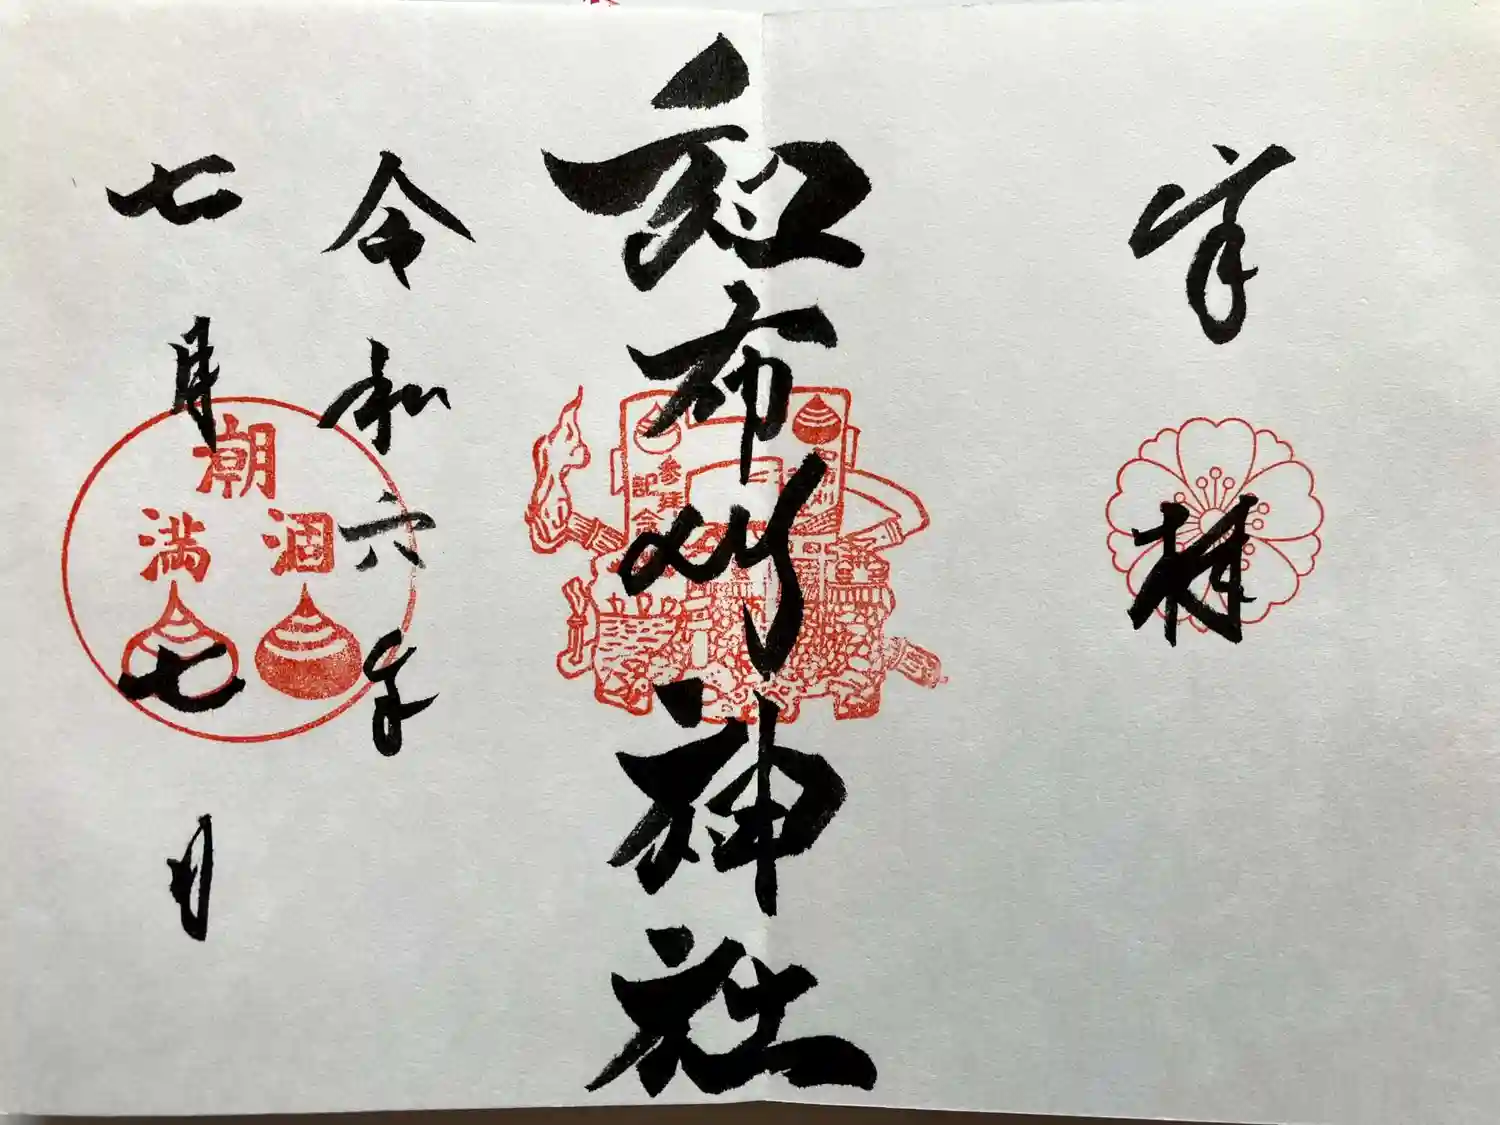 奉拝
和布刈神社
参拝
記念
令和六年
七月七日
潮
満 涸